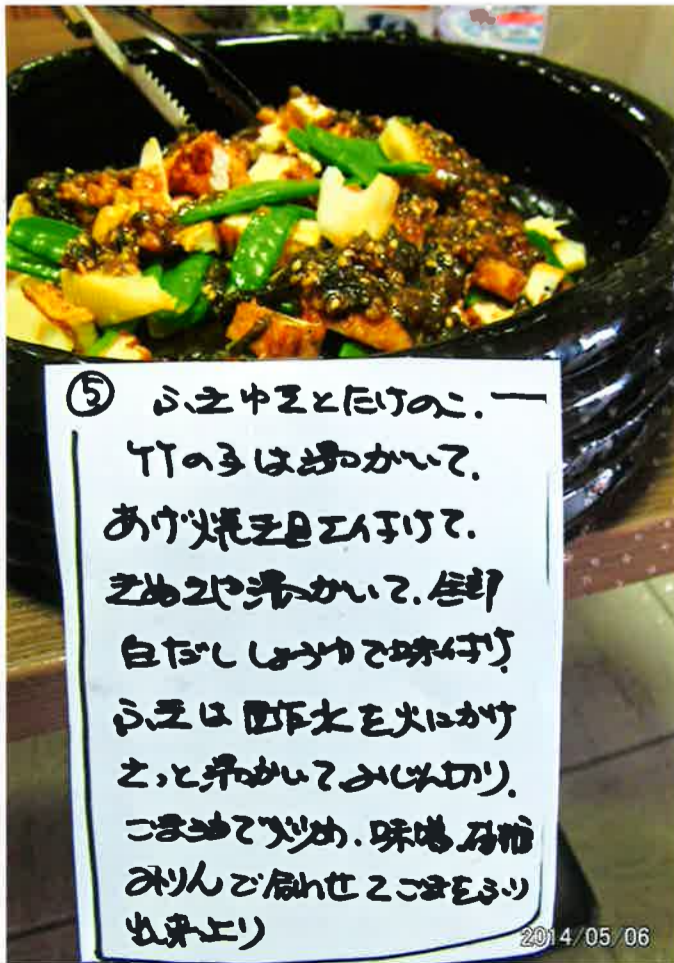 ⑤ ふきみそとたけのこ.
竹の子は湯がいて.
あげ焼き目を付けて.
きぬさや湯がいて.全部
白だししょうゆで味付け.
ふきは酢水を火にかけ
さっと湯がいてみじん切り.
ごま油で炒め.味噌.砂糖
みりんで合わせてごまをふり
出来上り
2014/05/06